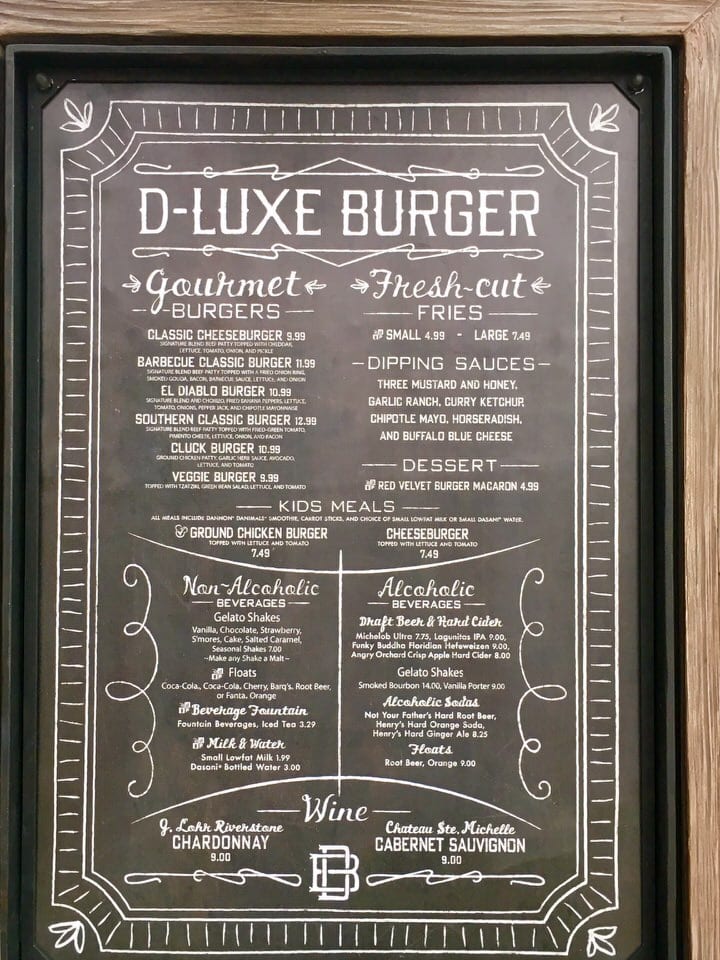 D-LUXE BURGER
Gourmet
BURGERS
CLASSIC CHEESEBURGER 9.99
SIGNATURE BLEND BEEF PATTY TOPPED WITH CHEDDAR,
LETTUCE, TOMATO, ONION, AND PICKLE
BARBECUE CLASSIC BURGER 11.99
SIGNATURE BLEND BEEF PATTY TOPPED WITH A FRIED ONION RING,
SMOKED GOUDA, BACON, BARBECUE SAUCE, LETTUCE, AND ONION
EL DIABLO BURGER 10.99
SIGNATURE BLEND AND CHORIZO, FRIED BANANA PEPPERS, LETTUCE,
TOMATO, ONIONS, PEPPER JACK, AND CHIPOTLE MAYONNAISE
SOUTHERN CLASSIC BURGER 12.99
SIGNATURE BLEND BEEF PATTY TOPPED WITH FRIED-GREEN TOMATO,
PIMENTO CHEESE, LETTUCE, ONION, AND BACON
CLUCK BURGER 10.99
GROUND CHICKEN PATTY, GARLIC HERB SAUCE, AVOCADO,
LETTUCE, AND TOMATO
VEGGIE BURGER 9.99
TOPPED WITH TZATZIKI, GREEN BEAN SALAD, LETTUCE, AND TOMATO
Fresh-cut
FRIES
SMALL 4.99 - LARGE 7.49
DIPPING SAUCES
THREE MUSTARD AND HONEY,
GARLIC RANCH, CURRY KETCHUP,
CHIPOTLE MAYO, HORSERADISH,
AND BUFFALO BLUE CHEESE
DESSERT
RED VELVET BURGER MACARON 4.99
KIDS MEALS
ALL MEALS INCLUDE DANNON® DANIMALS® SMOOTHIE, CARROT STICKS, AND CHOICE OF SMALL LOWFAT MILK OR SMALL DASANI® WATER.
GROUND CHICKEN BURGER
TOPPED WITH LETTUCE AND TOMATO
7.49
CHEESEBURGER
TOPPED WITH LETTUCE AND TOMATO
7.49
Non-Alcoholic
BEVERAGES
Gelato Shakes
Vanilla, Chocolate, Strawberry,
S'mores, Cake, Salted Caramel,
Seasonal Shakes 7.00
~Make any Shake a Malt~
Floats
Coca-Cola, Coca-Cola, Cherry, Barq's, Root Beer,
or Fanta, Orange
Beverage Fountain
Fountain Beverages, Iced Tea 3.29
Milk & Water
Small Lowfat Milk 1.99
Dasani® Bottled Water 3.00
Alcoholic
BEVERAGES
Draft Beer & Hard Cider
Michelob Ultra 7.75, Lagunitas IPA 9.00,
Funky Buddha Floridian Hefeweizen 9.00,
Angry Orchard Crisp Apple Hard Cider 8.00
Gelato Shakes
Smoked Bourbon 14.00, Vanilla Porter 9.00
Alcoholic Sodas
Not Your Father's Hard Root Beer,
Henry's Hard Orange Soda,
Henry's Hard Ginger Ale 8.25
Floats
Root Beer, Orange 9.00
Wine
J. Lohr Riverstone
CHARDONNAY
9.00
Chateau Ste. Michelle
CABERNET SAUVIGNON
9.00
DB